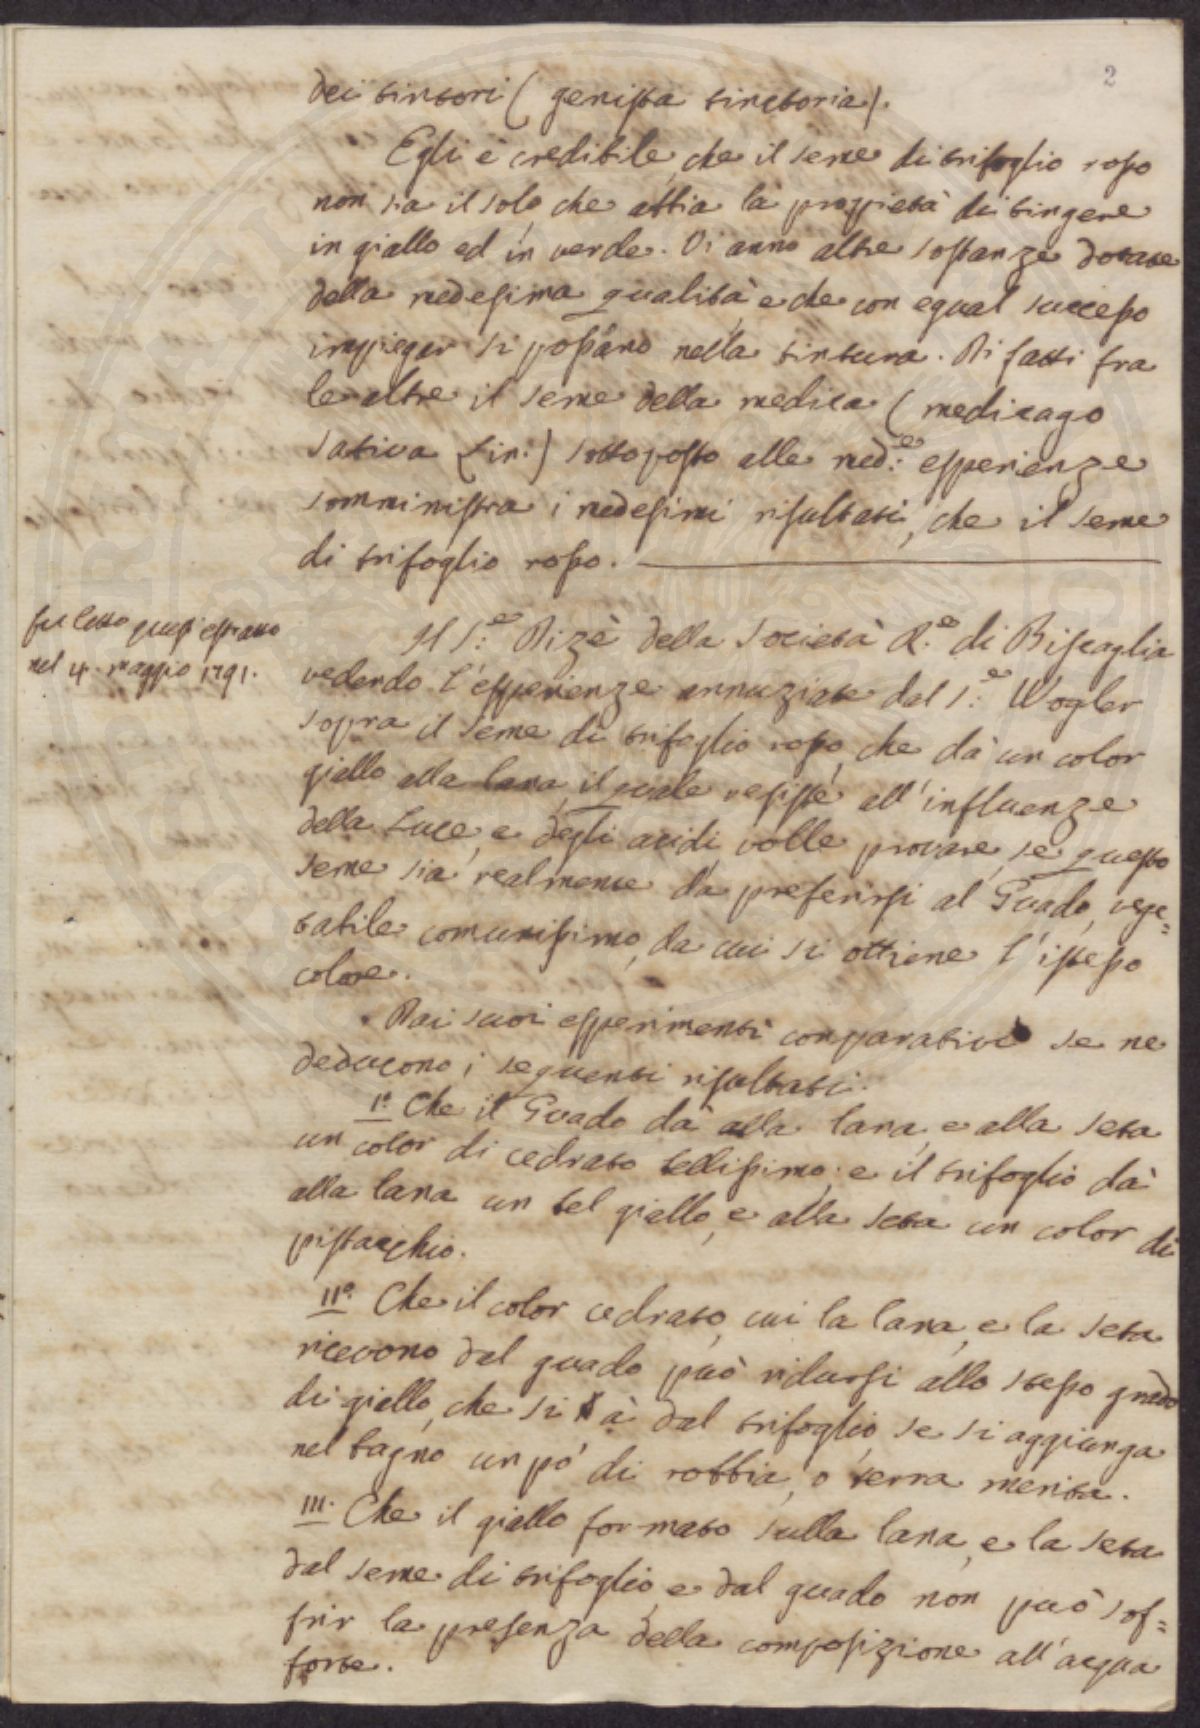 2
dei tintori (genista tinctoria).
Egli è credibile, che il seme di trifoglio rosso
non sia il solo, che abbia la proprietà di tingere
in giallo ed in verde. Vi anno altre sostanze dotate
della medesima qualità, e che con egual successo
impiegar si possano nella tintura. Di fatti fra
le altre il seme della medica (medicago
sativa Lin:) sottoposto alle med:e esperienze
somministra i medesimi risultati, che il seme
di trifoglio rosso.
fu letto quest'estratto
nel 4. maggio 1791.
Il S:e Dizè della Società R.e di Biscaglia
vedendo l'esperienze annuziate dal S:e Wogler
sopra il seme di trifoglio rosso, che dà un color
giallo alla lana, il quale resiste all'influenze
della Luce, e degli acidi, volle provare, se questo
seme sia realmente da preferirsi al Guado, vege=
tabile comunissimo, da cui si ottiene l'istesso
colore.
Dai suoi esperimenti comparativi se ne
deducono i seguenti risultati:
I.o Che il Guado dà alla lana, e alla seta
un color di cedrato bellissimo; e il trifoglio dà
alla lana un bel giallo, e alla seta un color di
pistacchio.
II.o Che il color cedrato, cui la lana, e la seta
ricevono dal guado può ridursi allo stesso grado
di giallo, che si à dal trifoglio, se si aggiunga
nel bagno un pò di robbia, o terra merita.
III. Che il giallo formato sulla lana, e la seta
dal seme di trifoglio, e dal guado non può sof=
frir la presenza della composizione all'acqua
forte.